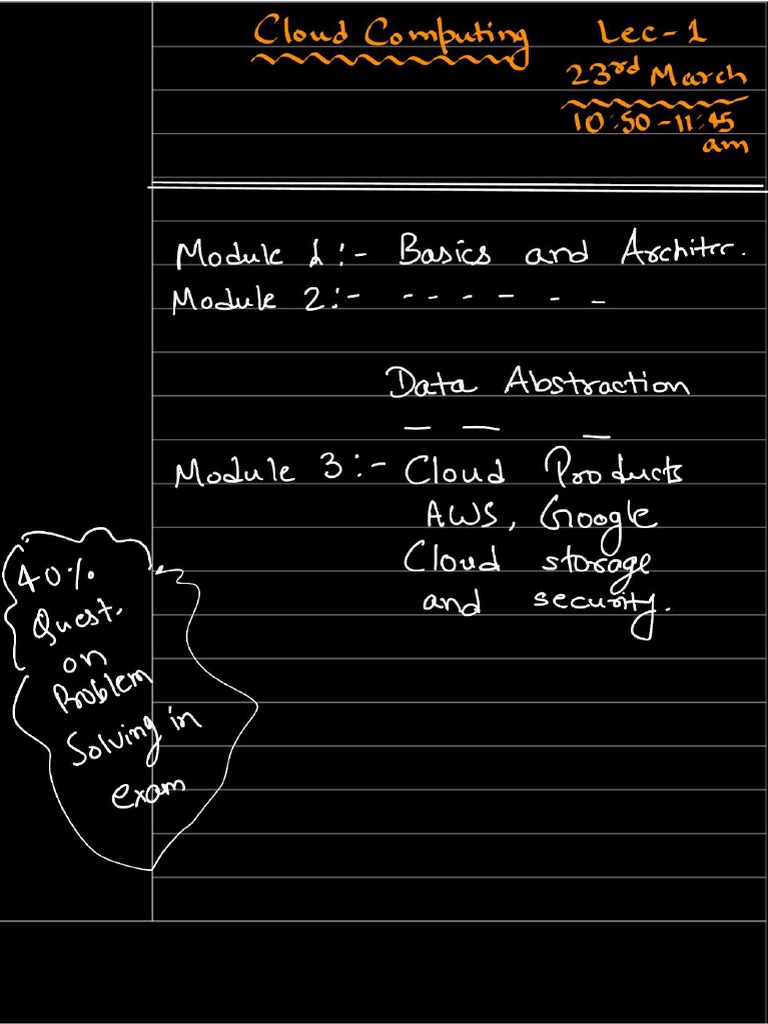 Cloud Computing Lec-1
23rd March
10:50-11:45
am
Module 1:- Basics and Architec.
Module 2:- - - - - - -
Data Abstraction
— — —
Module 3:- Cloud Products
AWS, Google
Cloud storage
and security.
40%
Quest.
on
Problem
Solving in
exam